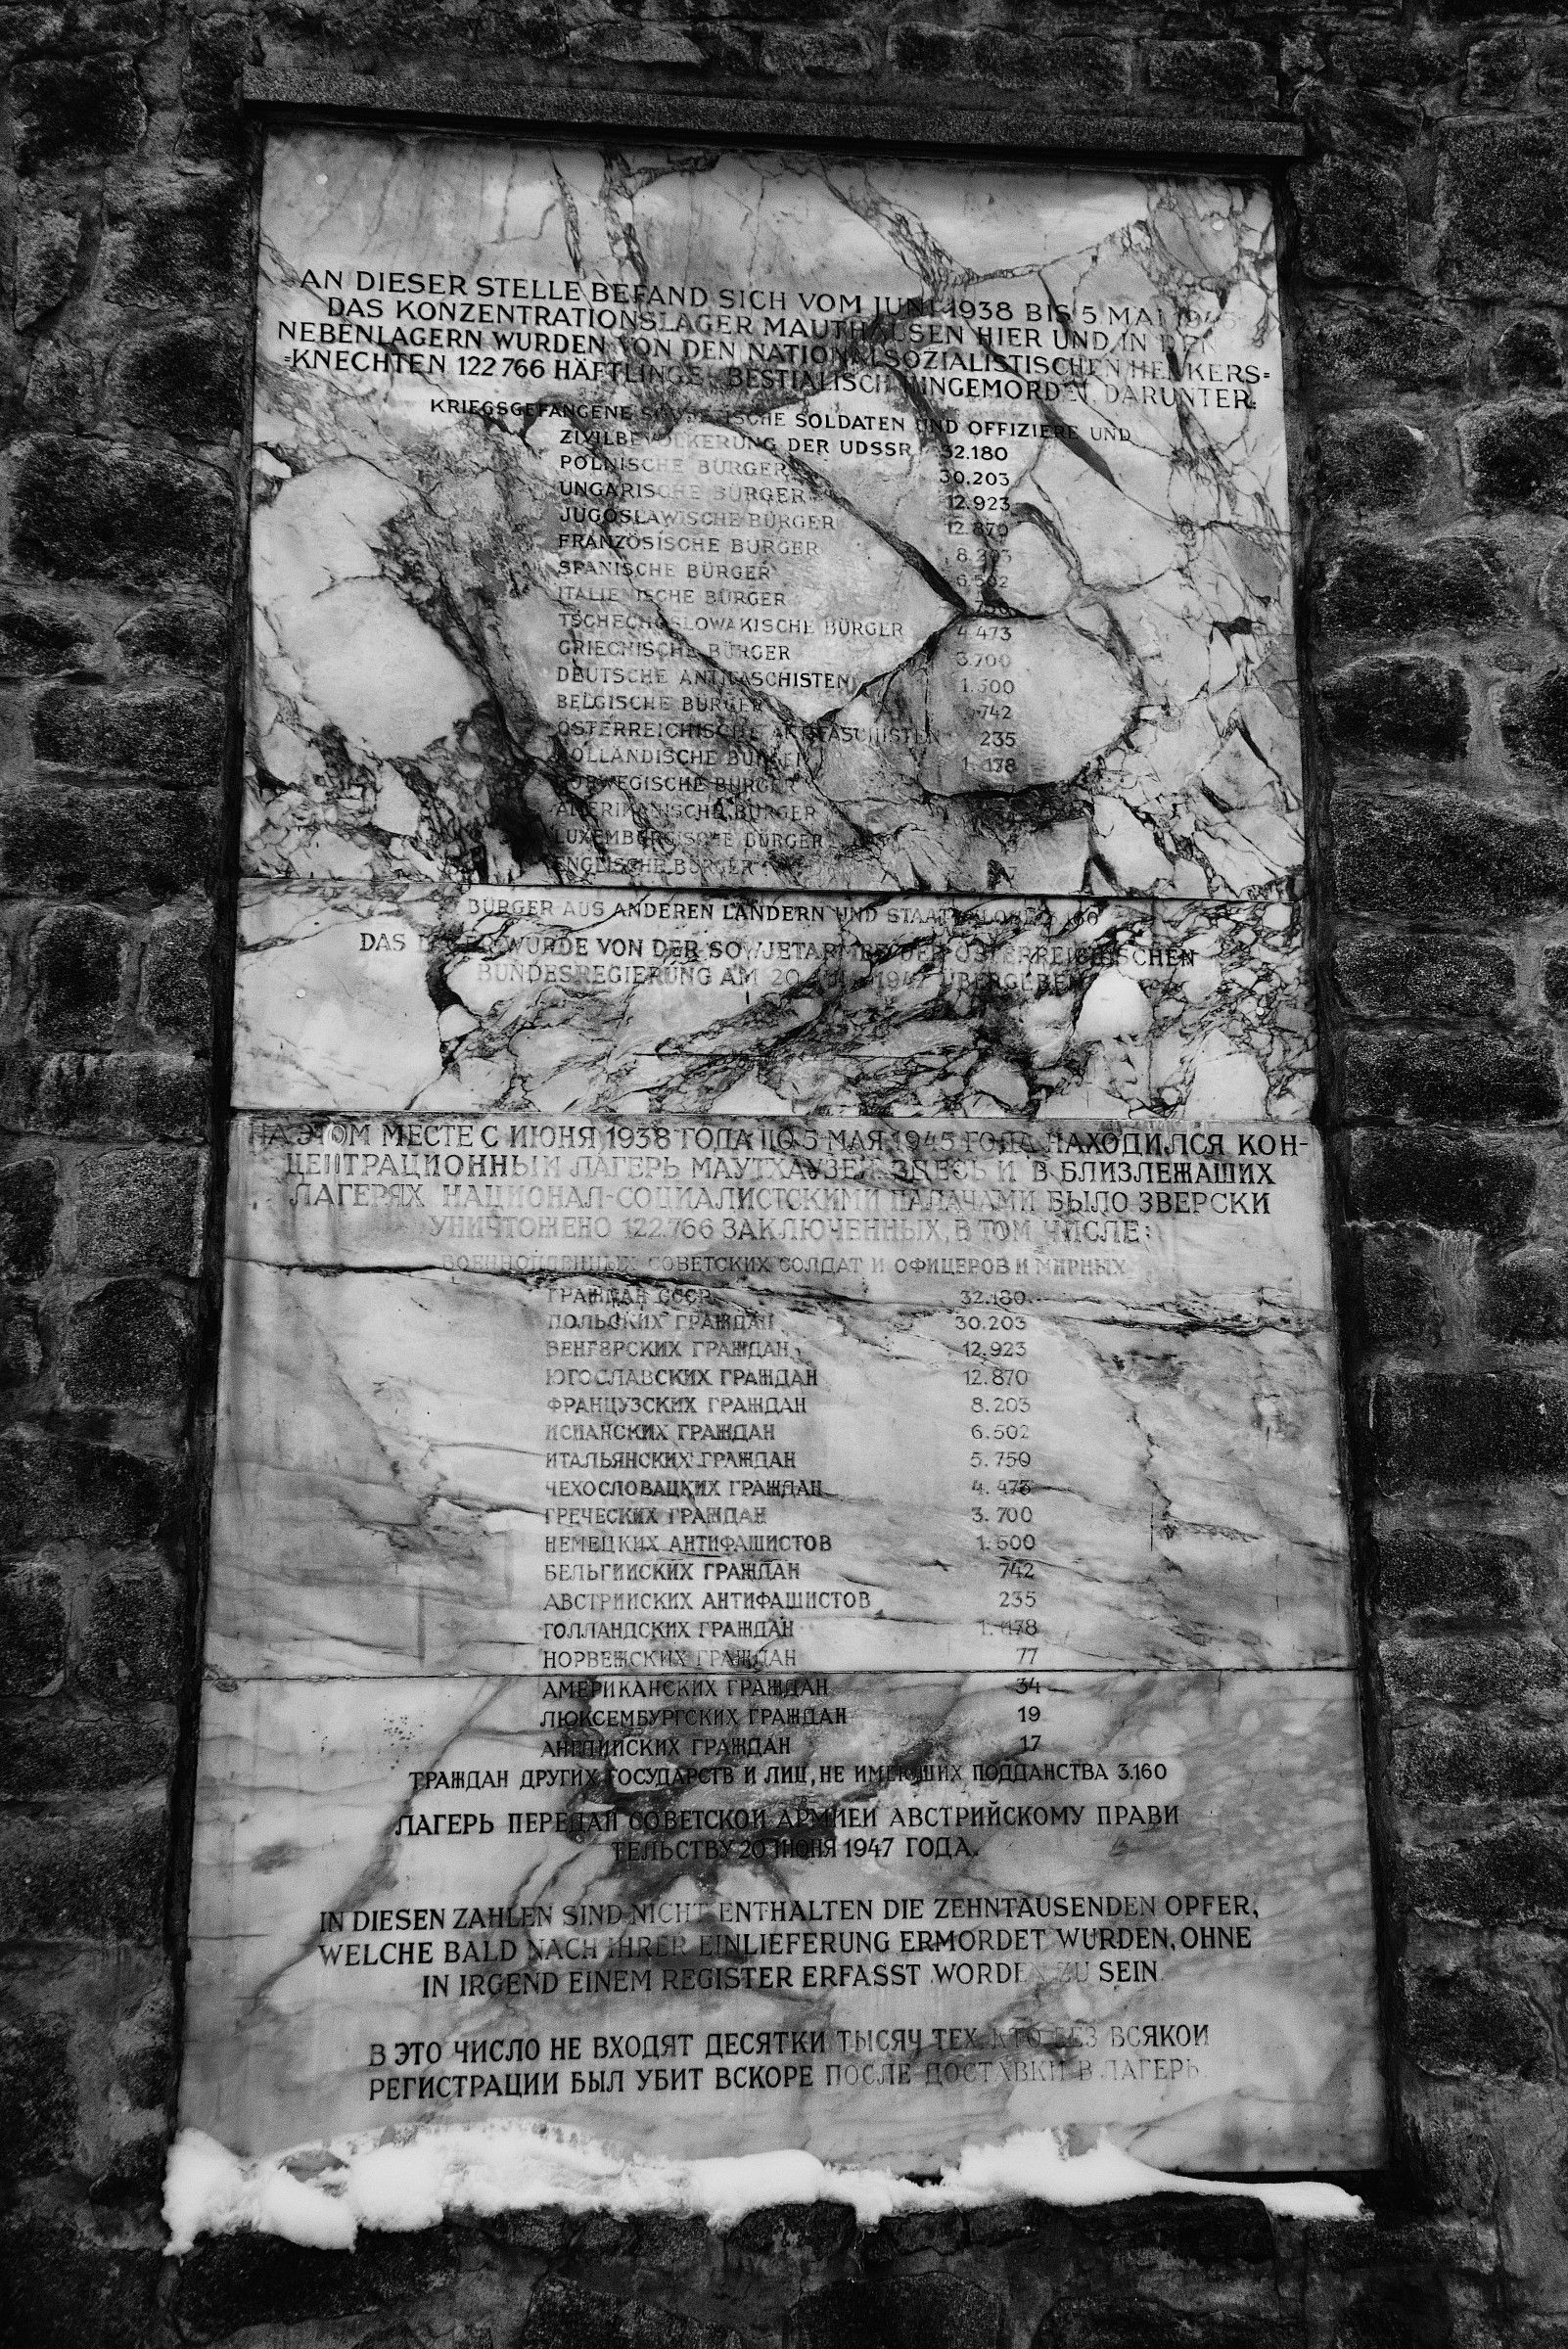 AN DIESER STELLE BEFAND SICH VOM JUNI 1938 BIS 5 MAI 1945
DAS KONZENTRATIONSLAGER MAUTHAUSEN HIER UND IN DEN
NEBENLAGERN WURDEN VON DEN NATIONALSOZIALISTISCHEN HENKERS=
=KNECHTEN 122 766 HÄFTLINGE BESTIALISCH HINGEMORDET, DARUNTER:
KRIEGSGEFANGENE SOWJETISCHE SOLDATEN UND OFFIZIERE UND
ZIVILBEVÖLKERUNG DER UDSSR 32.180
POLNISCHE BÜRGER 30.203
UNGARISCHE BÜRGER 12.923
JUGOSLAWISCHE BÜRGER 12.870
FRANZÖSISCHE BÜRGER 8.203
SPANISCHE BÜRGER 6.502
ITALIENISCHE BÜRGER
TSCHECHOSLOWAKISCHE BÜRGER 4.473
GRIECHISCHE BÜRGER 3.700
DEUTSCHE ANTIFASCHISTEN 1.500
BELGISCHE BÜRGER 742
ÖSTERREICHISCHE ANTIFASCHISTEN 235
HOLLÄNDISCHE BÜRGER
NORWEGISCHE BÜRGER
AMERIKANISCHE BÜRGER
LUXEMBURGISCHE BÜRGER
ENGLISCHE BÜRGER
BÜRGER AUS ANDEREN LÄNDERN UND STAATENLOSE 3.160
DAS LAGER WURDE VON DER SOWJETARMEE DER ÖSTERREICHISCHEN
BUNDESREGIERUNG AM 20 1947 ÜBERGEBEN
НА ЭТОМ МЕСТЕ С ИЮНЯ 1938 ГОДА ПО 5 МАЯ 1945 ГОДА НАХОДИЛСЯ КОН-
ЦЕНТРАЦИОННЫЙ ЛАГЕРЬ МАУТХАУЗЕН. ЗДЕСЬ И В БЛИЗЛЕЖАШИХ
ЛАГЕРЯХ НАЦИОНАЛ-СОЦИАЛИСТСКИМИ ПАЛАЧАМИ БЫЛО ЗВЕРСКИ
УНИЧТОЖЕНО 122.766 ЗАКЛЮЧЕННЫХ, В ТОМ ЧИСЛЕ:
ВОЕННОПЛЕННЫХ СОВЕТСКИХ СОЛДАТ И ОФИЦЕРОВ И МИРНЫХ
ГРАЖДАН СССР 32.180
ПОЛЬСКИХ ГРАЖДАН 30.203
ВЕНГЕРСКИХ ГРАЖДАН 12.923
ЮГОСЛАВСКИХ ГРАЖДАН 12.870
ФРАНЦУЗСКИХ ГРАЖДАН 8.203
ИСПАНСКИХ ГРАЖДАН 6.502
ИТАЛЬЯНСКИХ ГРАЖДАН 5.750
ЧЕХОСЛОВАЦКИХ ГРАЖДАН 4.473
ГРЕЧЕСКИХ ГРАЖДАН 3.700
НЕМЕЦКИХ АНТИФАШИСТОВ 1.500
БЕЛЬГИЙСКИХ ГРАЖДАН 742
АВСТРИЙСКИХ АНТИФАШИСТОВ 235
ГОЛЛАНДСКИХ ГРАЖДАН
НОРВЕЖСКИХ ГРАЖДАН 77
АМЕРИКАНСКИХ ГРАЖДАН 34
ЛЮКСЕМБУРГСКИХ ГРАЖДАН 19
АНГЛИЙСКИХ ГРАЖДАН 17
ГРАЖДАН ДРУГИХ ГОСУДАРСТВ И ЛИЦ, НЕ ИМЕЮШИХ ПОДДАНСТВА 3.160
ЛАГЕРЬ ПЕРЕДАН СОВЕТСКОЙ АРМИЕЙ АВСТРИЙСКОМУ ПРАВИ
ТЕЛЬСТВУ 20 ИЮНЯ 1947 ГОДА.
IN DIESEN ZAHLEN SIND NICHT ENTHALTEN DIE ZEHNTAUSENDEN OPFER,
WELCHE BALD NACH IHRER EINLIEFERUNG ERMORDET WURDEN, OHNE
IN IRGEND EINEM REGISTER ERFASST WORDEN ZU SEIN
В ЭТО ЧИСЛО НЕ ВХОДЯТ ДЕСЯТКИ ТЫСЯЧ ТЕХ, КТО БЕЗ ВСЯКОЙ
РЕГИСТРАЦИИ БЫЛ УБИТ ВСКОРЕ ПОСЛЕ ДОСТАВКИ В ЛАГЕРЬ.